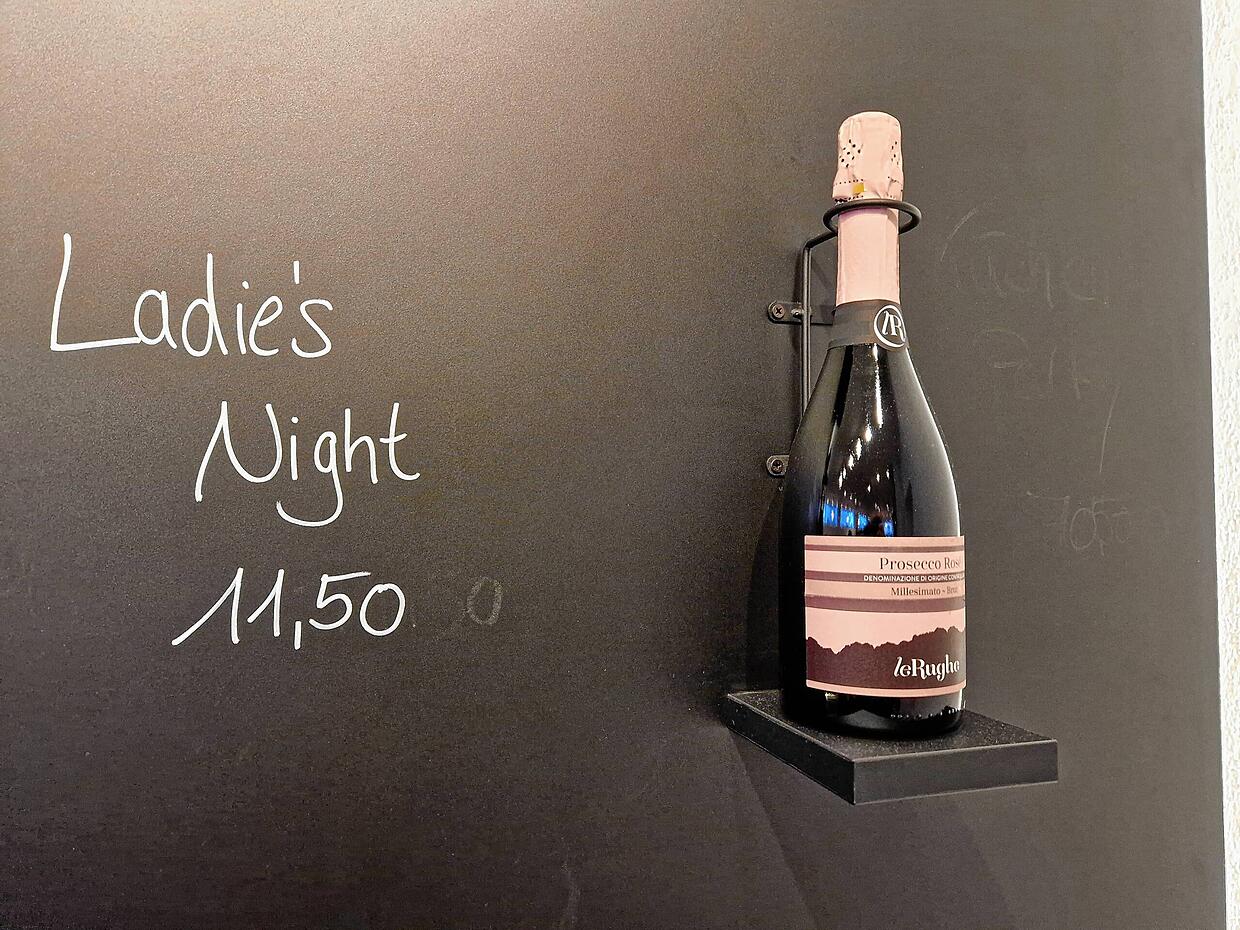 Ladie's
Night
11,50
lR
Prosecco Rosé
DENOMINAZIONE DI ORIGINE
Millesimato ~ Brut
leRughe